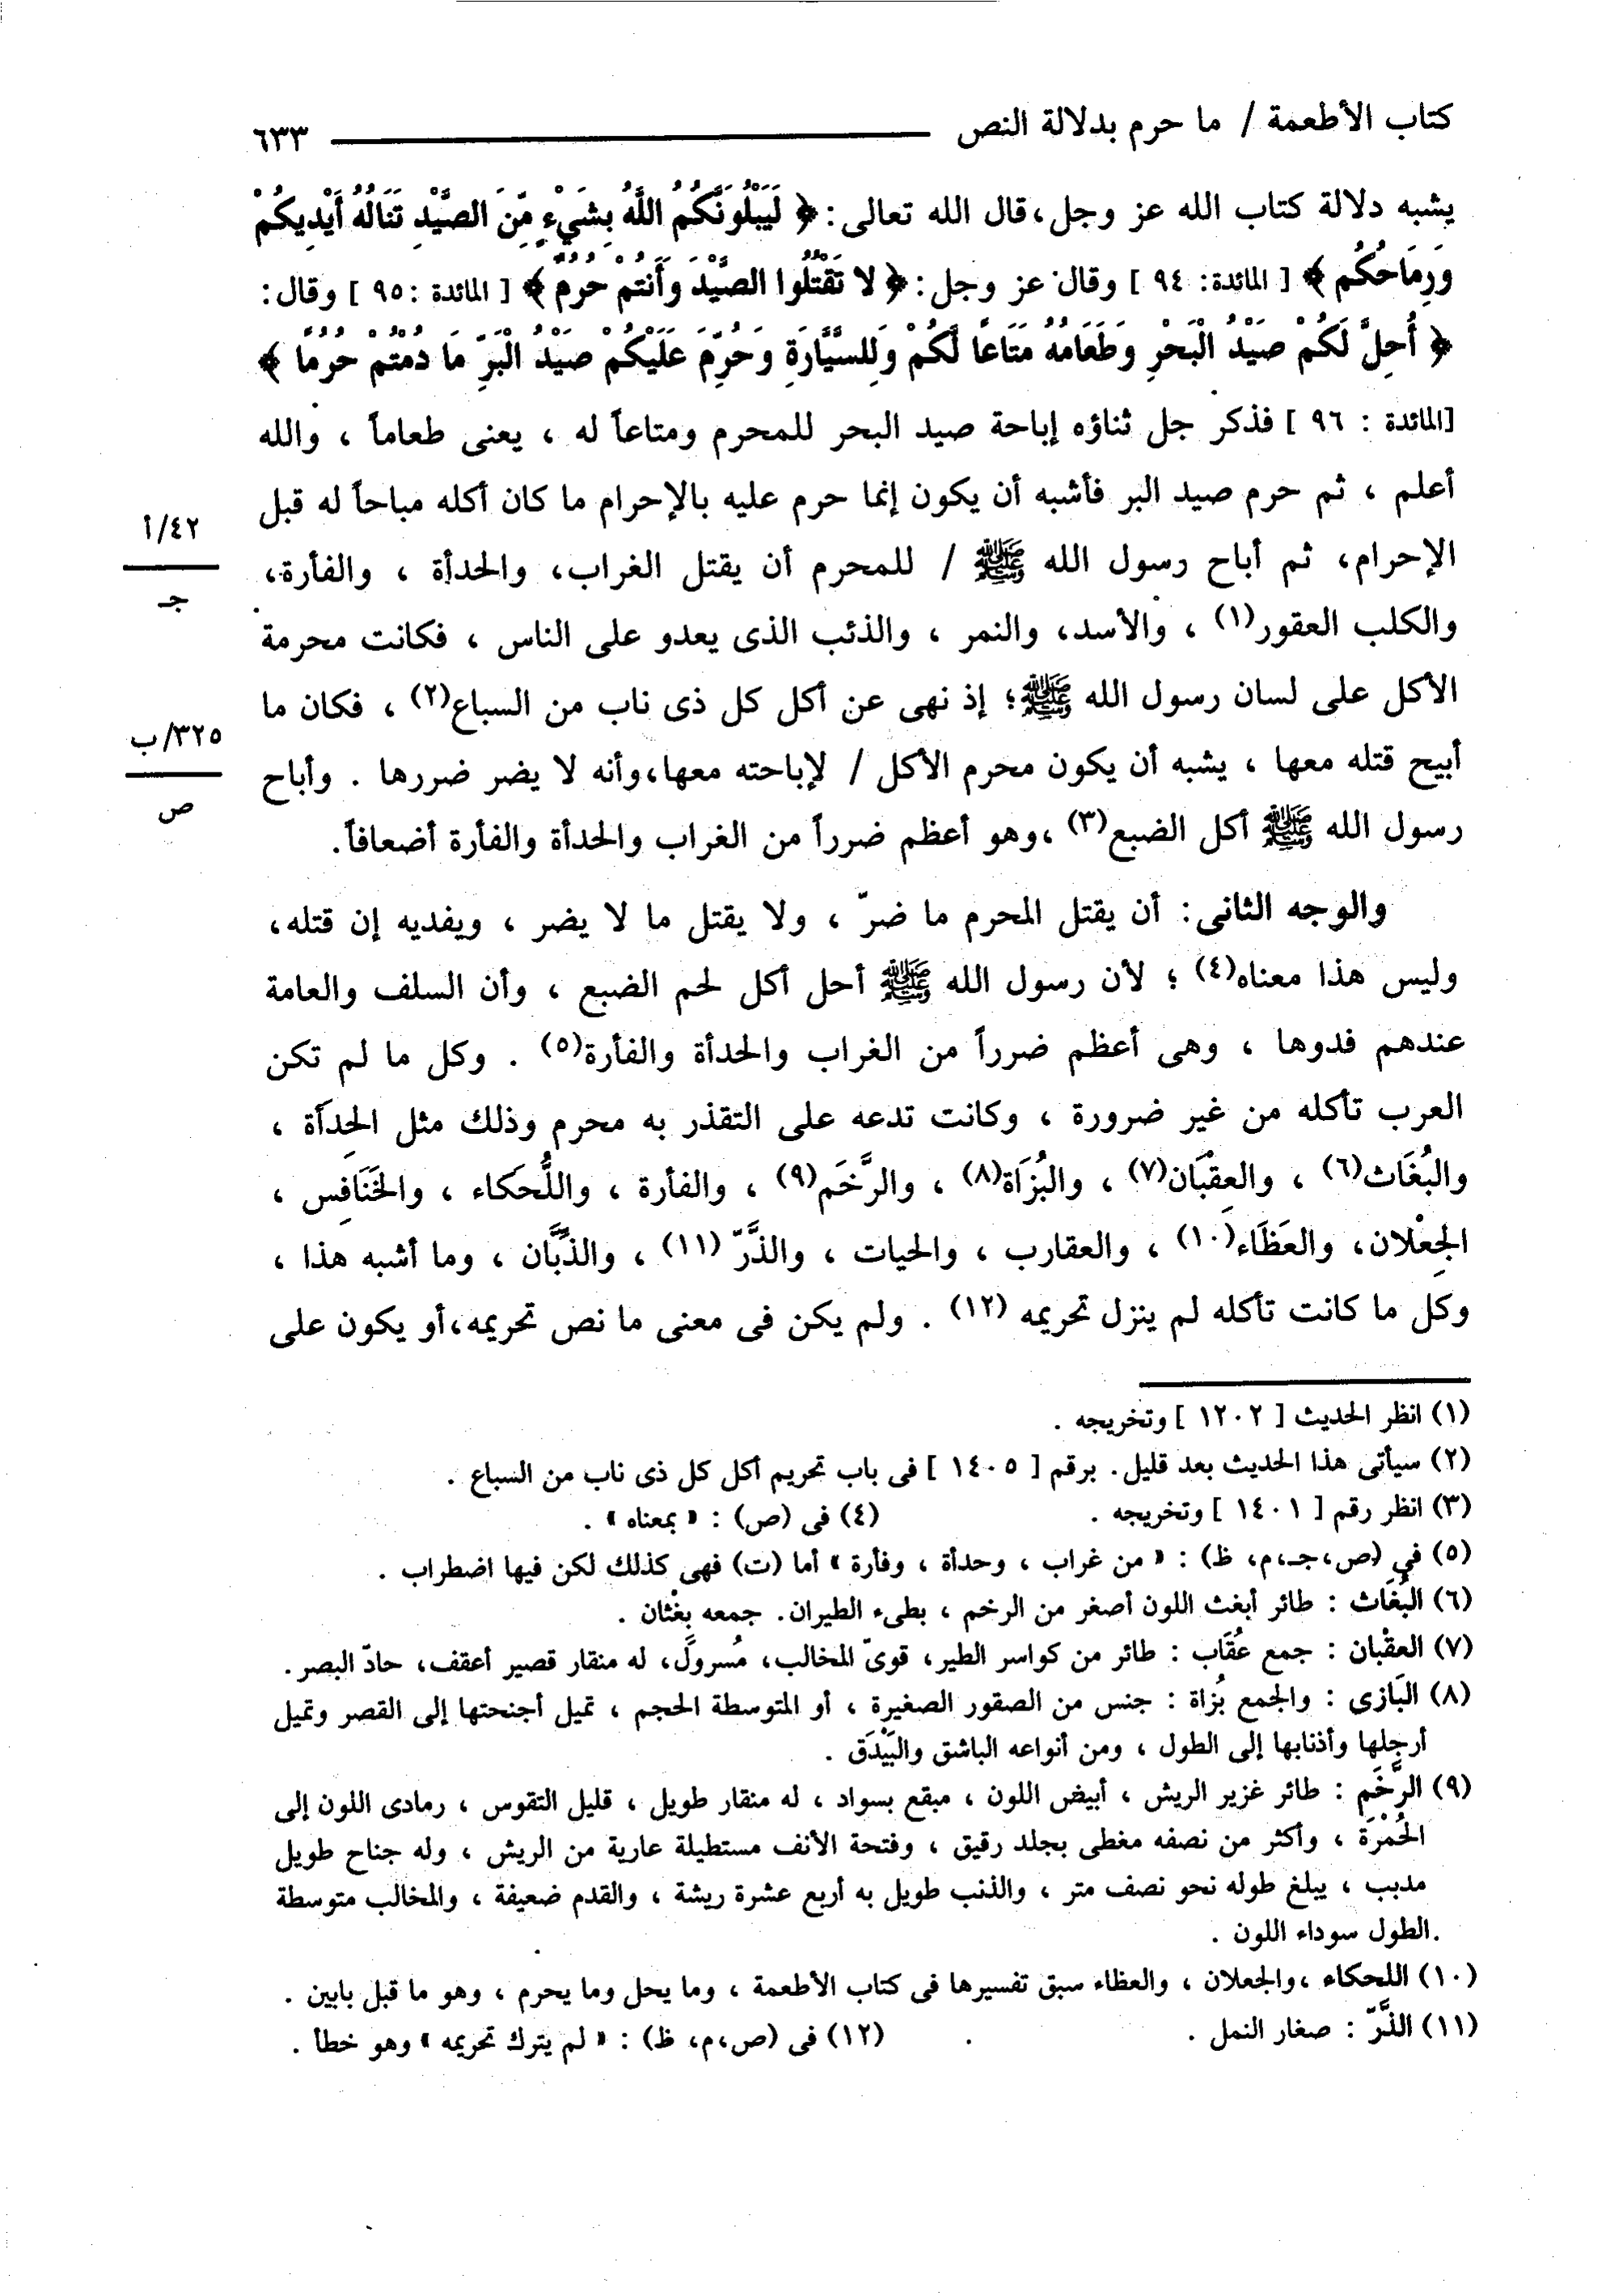 كتاب الأطعمة / ما حرم بدلالة النص ٦٣٣
يشبه دلالة كتاب الله عز وجل، قال الله تعالى: ﴿ لَيَبْلُوَنَّكُمُ اللَّهُ بِشَيْءٍ مِّنَ الصَّيْدِ تَنَالُهُ أَيْدِيكُمْ
وَرِمَاحُكُم ﴾ [ المائدة: ٩٤ ] وقال عز وجل: ﴿ لا تَقْتُلُوا الصَّيْدَ وَأَنتُمْ حُرُمٌ ﴾ [ المائدة :٩٥ ] وقال:
﴿ أُحِلَّ لَكُمْ صَيْدُ الْبَحْرِ وَطَعَامُهُ مَتَاعًا لَّكُمْ وَلِلسَّيَّارَةِ وَحُرِّمَ عَلَيْكُمْ صَيْدُ الْبَرِّ مَا دُمْتُمْ حُرُمًا ﴾
[المائدة : ٩٦ ] فذكر جل ثناؤه إباحة صيد البحر للمحرم ومتاعاً له ، يعنى طعاماً ، والله
أعلم ، ثم حرم صيد البر فأشبه أن يكون إنما حرم عليه بالإحرام ما كان أكله مباحاً له قبل
٤٢/أ
الإحرام، ثم أباح رسول الله ﷺ / للمحرم أن يقتل الغراب، والحدأة ، والفأرة،
جـ
والكلب العقور(١) ، والأسد، والنمر ، والذئب الذى يعدو على الناس ، فكانت محرمة
الأكل على لسان رسول الله ﷺ؛ إذ نهى عن أكل كل ذى ناب من السباع(٢) ، فكان ما
٣٢٥/ب
أبيح قتله معها ، يشبه أن يكون محرم الأكل / لإباحته معها،وأنه لا يضر ضررها . وأباح
ص
رسول الله ﷺ أكل الضبع(٣) ،وهو أعظم ضرراً من الغراب والحدأة والفأرة أضعافاً.
والوجه الثانى: أن يقتل المحرم ما ضرّ ، ولا يقتل ما لا يضر ، ويفديه إن قتله،
وليس هذا معناه(٤) ؛ لأن رسول الله ﷺ أحل أكل لحم الضبع ، وأن السلف والعامة
عندهم فدوها ، وهى أعظم ضرراً من الغراب والحدأة والفأرة(٥) . وكل ما لم تكن
العرب تأكله من غير ضرورة ، وكانت تدعه على التقذر به محرم وذلك مثل الحِدَأة ،
والبُغَاث(٦) ، والعِقْبَان(٧) ، والبُزَاة(٨) ، والرَّخَم(٩) ، والفأرة ، واللُّحَكاء ، والخَنَافِس ،
الجِعْلان، والعَظَاء(١٠) ، والعقارب ، والحيات ، والذَّرّ (١١) ، والذِّبَّان ، وما أشبه هذا ،
وكل ما كانت تأكله لم ينزل تحريمه (١٢) . ولم يكن فى معنى ما نص تحريمه،أو يكون على
(١) انظر الحديث [ ١٢٠٢ ] وتخريجه .
(٢) سيأتى هذا الحديث بعد قليل. برقم [ ١٤٠٥ ] فى باب تحريم أكل كل ذى ناب من السباع .
(٣) انظر رقم [ ١٤٠١ ] وتخريجه . (٤) فى (ص) : « بمعناه » .
(٥) في (ص،جـ،م، ظ) : « من غراب ، وحدأة ، وفأرة » أما (ت) فهى كذلك لكن فيها اضطراب .
(٦) البُغَاث : طائر أبغث اللون أصغر من الرخم ، بطىء الطيران. جمعه بِغْثان .
(٧) العقْبان : جمع عُقَاب : طائر من كواسر الطير، قوىّ المخالب، مُسرولَ، له منقار قصير أعقف، حادّ البصر.
(٨) البَازى : والجمع بُزاة : جنس من الصقور الصغيرة ، أو المتوسطة الحجم ، تميل أجنحتها إلى القصر وتميل
أرجلها وأذنابها إلى الطول ، ومن أنواعه الباشق والبَيْدَق .
(٩) الرَّخَم : طائر غزير الريش ، أبيض اللون ، مبقع بسواد ، له منقار طويل ، قليل التقوس ، رمادى اللون إلى
الحُمْرَة ، وأكثر من نصفه مغطى بجلد رقيق ، وفتحة الأنف مستطيلة عارية من الريش ، وله جناح طويل
مدبب ، يبلغ طوله نحو نصف متر ، والذنب طويل به أربع عشرة ريشة ، والقدم ضعيفة ، والمخالب متوسطة
الطول سوداء اللون .
(١٠) اللحكاء ،والجعلان ، والعظاء سبق تفسيرها فى كتاب الأطعمة ، وما يحل وما يحرم ، وهو ما قبل بابين .
(١١) الذَّرّ : صغار النمل . (١٢) فى (ص،م، ظ) : « لم يترك تحريمه » وهو خطأ .